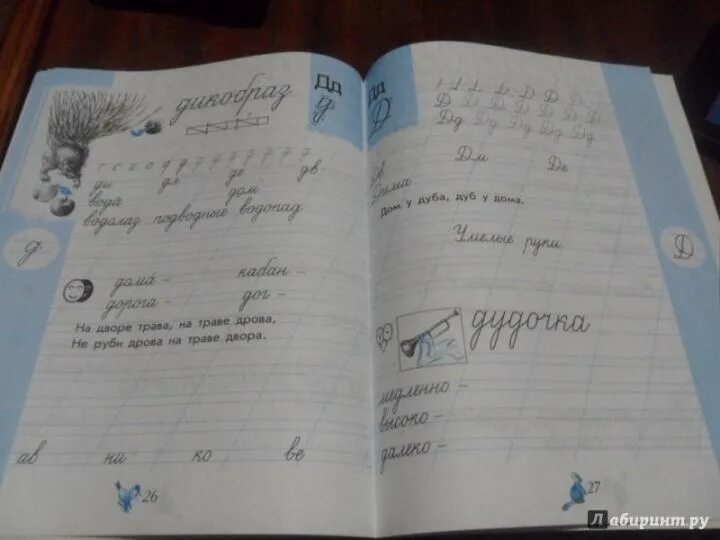 дикобраз
Дд
д
ди дл де дв
вода дом
водолаз подводные водопад
д
дома – кабан –
дорога – дог –
На дворе трава, на траве дрова,
Не руби дрова на траве двора.
ав на ко ве
26
Дд
Д
Д Д Д
Д Д Д Д Д Д
Дд Дд Дд Дд Дд
Дм Де
Дв
Дом у дуба, дуб у дома.
Умелые руки.
Д
дудочка
медленно –
высоко –
далеко –
27
Лабиринт.ру